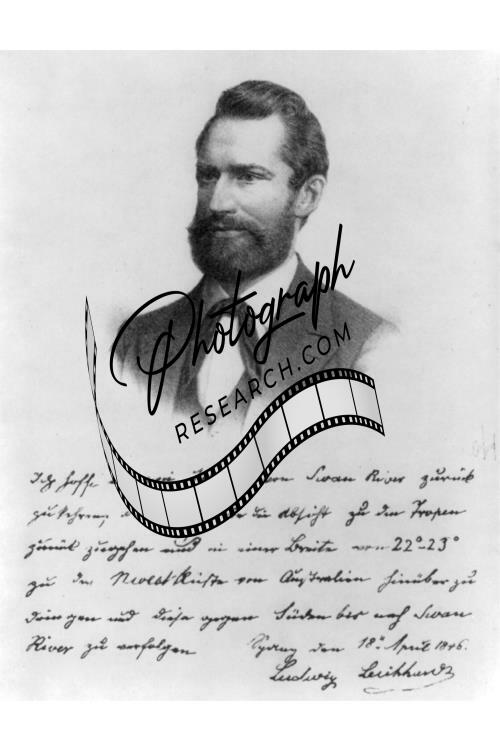 Photograph
RESEARCH.COM
Ich hoffe von Swan River zurück
zu kehren, die Absicht zu den Tropen
zurück zugehen und in einer Breite von 22°-23°
zu der Nwest Küste von Australien hinüber zu
dringen und diese gegen Süden bis nach Swan
River zu verfolgen Sydney den 18t April 1846.
Ludwig Leichhardt